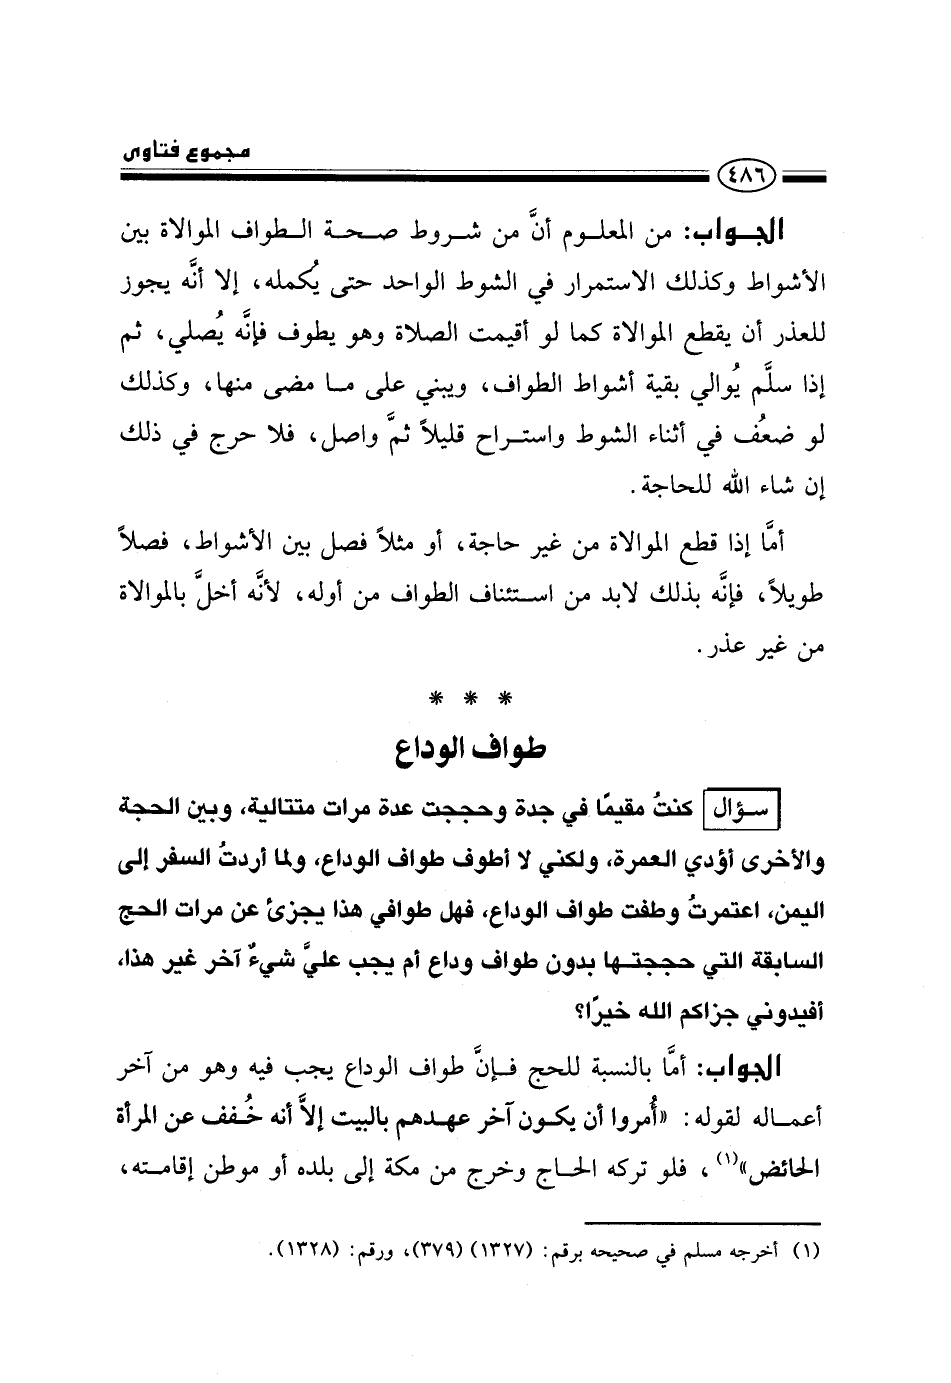 مجموع فتاوى
٤٨٦
الجواب: من المعلوم أنَّ من شروط صحة الطواف الموالاة بين
الأشواط وكذلك الاستمرار في الشوط الواحد حتى يُكمله، إلا أنَّه يجوز
للعذر أن يقطع الموالاة كما لو أقيمت الصلاة وهو يطوف فإنَّه يُصلي، ثم
إذا سلَّم يُوالي بقية أشواط الطواف، ويبني على ما مضى منها، وكذلك
لو ضعُف في أثناء الشوط واستراح قليلاً ثمَّ واصل، فلا حرج في ذلك
إن شاء الله للحاجة.
أمَّا إذا قطع الموالاة من غير حاجة، أو مثلاً فصل بين الأشواط، فصلاً
طويلاً، فإنَّه بذلك لابد من استئناف الطواف من أوله، لأنَّه أخلَّ بالموالاة
من غير عذر.
* * *
طواف الوداع
سؤال كنتُ مقيمًا في جدة وحججت عدة مرات متتالية، وبين الحجة
والأخرى أؤدي العمرة، ولكني لا أطوف طواف الوداع، ولما أردتُ السفر إلى
اليمن، اعتمرتُ وطفت طواف الوداع، فهل طوافي هذا يجزئ عن مرات الحج
السابقة التي حججتها بدون طواف وداع أم يجب عليَّ شيءٌ آخر غير هذا،
أفيدوني جزاكم الله خيرًا؟
الجواب: أمَّا بالنسبة للحج فإنَّ طواف الوداع يجب فيه وهو من آخر
أعماله لقوله: «أُمروا أن يكون آخر عهدهم بالبيت إلاَّ أنه خُفف عن المرأة
الحائض»(١)، فلو تركه الحاج وخرج من مكة إلى بلده أو موطن إقامته،
(١) أخرجه مسلم في صحيحه برقم: (١٣٢٧) (٣٧٩)، ورقم: (١٣٢٨).